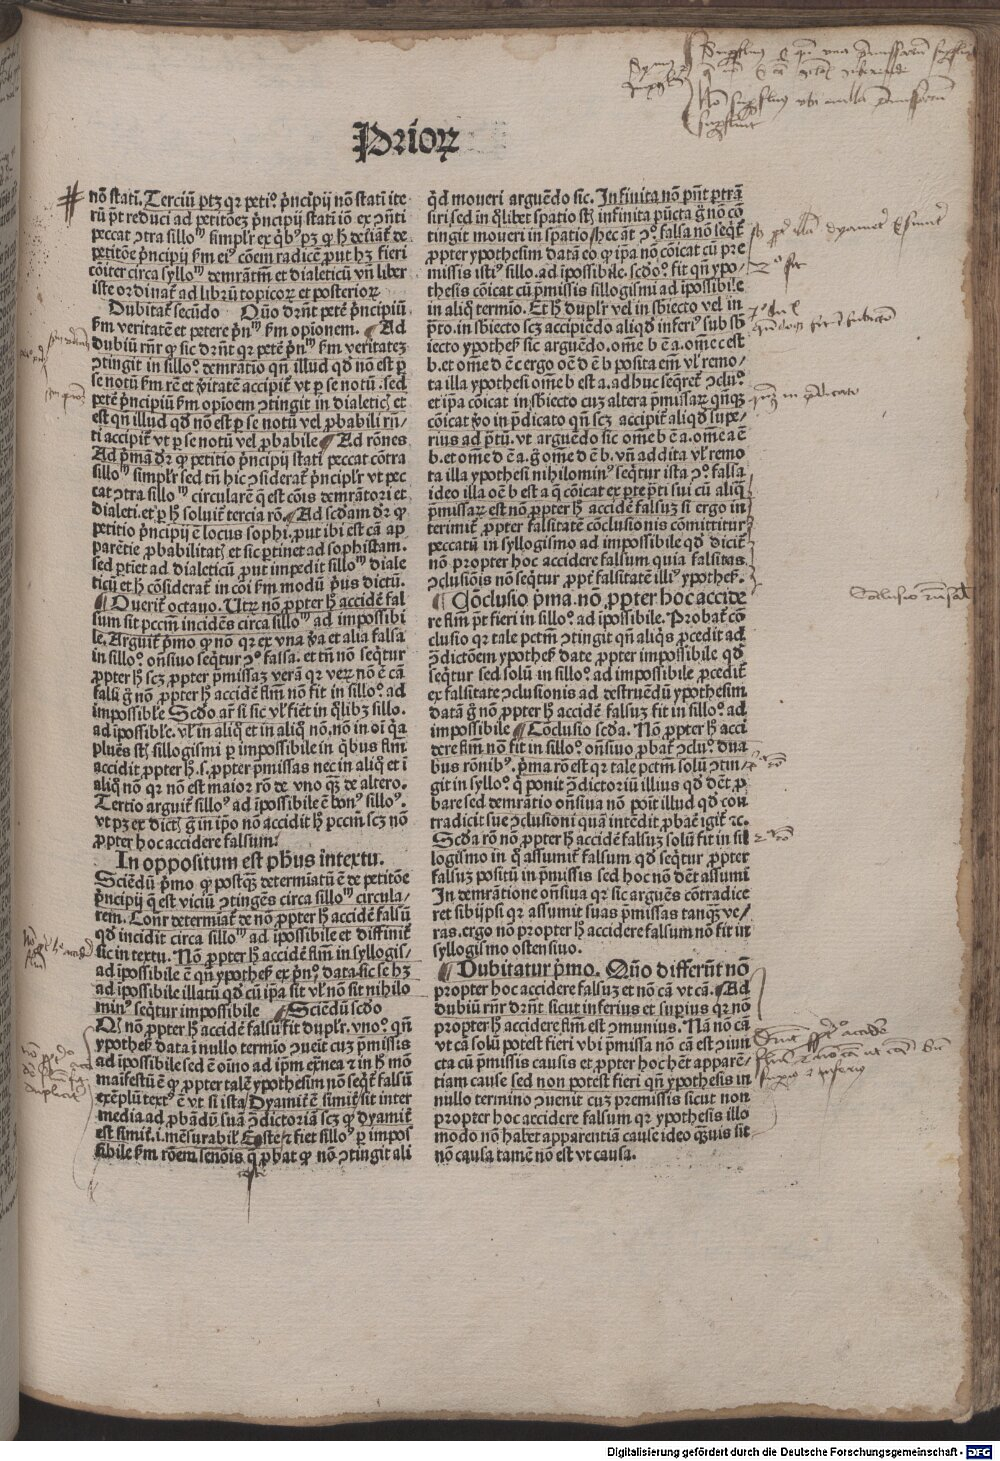 Prioꝝ
nō ſtati. Terciū ptꝫ qꝛ peti⁰. pͥncipij nō ſtati ite
rū pt̄ reduci ad petitōeꝫ pͥncipij ſtati iō ex ꝯn̄ti
peccat ꝯtra ſillo^m ſimplr̄ ex qͥbꝰ pꝫ ꝙ hͦ
petitōe pͥncipij ſm̄ eiꝰ cōem radicē put hꝫ fieri
cōiter circa ſyllo^m demr̄atm̄ et dialeticū vn̄ liber
iſte ordinat̄ ad librū topicoꝝ et poſterioꝝ
Dubitat̄ ſecūdo Quō dr̄nt petē pͥncipiū
ẜm veritatē et petere pͥn^m ẜm opionem. ¶ Ad
dubiū rn̄r ꝙ ſic dr̄nt qꝛ petē pͥn^m ẜm veritateꝫ
ꝯtingit in ſillo⁰. demratiō qn̄ illud qd̄ nō eſt p̲
ſe notū ẜm rē et v̓itatē accipit̄ vt p̲ ſe notū. ſed
petē pͥncipiū ẜm opioem ꝯtingit in dialeticꝭ et
eſt qn̄ illud qd̄ nō eſt p̲ ſe notū vel ꝓbabili
ti accipit̄ vt p̲ ſe notū vel ꝓbabile ¶ Ad rōnes
Ad pͥmā dr̄ ꝙ petitio pͥncipij ſtati peccat cōtra
ſillo^m ſimplr̄ ſed tn̄ hic ꝯſiderat̄ pͥnciplr̄ vt pec
cat ꝯtra ſillo^m circularē q̄ eſt cōis demrātori et
dialeti. et p̲ hͦ ſoluit̄ tercia rō. ¶ Ad ſcdam dr̄ ꝙ
petitio pͥncipij ē locus ſophi. put ibi eſt cā ap
parētie ꝓbabilitatꝭ et ſic p̲tinet ad ſophiſtam.
ſed p̲tiet ad dialeticū ꝓut impedit ſillo^m diale
ticū et hͦ cōſiderat̄ in cōi ẜm modū pͥus dictū.
¶ Querit̄ octauo. Utꝝ nō ꝓpter hͦ accidē fal
ſum ſit pccm̄ incidēs circa ſillo^m ad impoſſibi
le. Arguit̄ pͥmo ꝙ nō qꝛ ex vna v̓a et alia falſa
in ſillo⁰. oſn̄ſiuo ſeqͥtur ꝯ⁰. falſa. et tn̄ nō ſeqͥtur
ꝓpter hͦ ſcꝫ ꝓpter pͥmiſſaꝫ verā qꝛ veꝝ nō ē cā
falſi g̊ nō ꝓpter hͦ accidē flm̄ nō fit in ſillo⁰. ad
impoſſible Scd̄o ar̄ ſi ſic vl̄ fiēt in qͥlibꝫ ſillo.
ad īpoſſible. vl̄ in aliqͦ et in aliqͦ nō. nō in oī qꝛ
plues ſt̄ ſillogiſmi p̲ impoſſibile in qͥbus flm̄
accidit ꝓpter hͦ. ſ. ꝓpter pͥmiſſas nec in aliqͦ et ī
aliqͦ nō qꝛ nō eſt maior rō de vno qꝫ de altero.
Tertio arguit̄ ſilloꝰ ad īpoſſibile ē bonꝰ ſilloꝰ.
vt pꝫ ex dictꝭ g̊ in ip̄o nō accidit hͦ pccm̄ ſcꝫ nō
ꝓpter hoc accidere falſum.
In oppoſitum eſt ph̄us intextu.
Sciēdū pͥmo ꝙ poſtqꝫ determiatū ē de petitōe
pͥncipij q̄ eſt viciū ꝯtingēs circa ſillo^m circula/
rem. Conr̄ determiat̄ de nō ꝓpter hͦ accidē falſū
qd̄ incidit circa ſillo^m ad impoſſibile et diffinit̄
ſic in textu. Nō ꝓpter hͦ accidē flm̄ in ſyllogiſ/
ad īpoſſibile ē qn̄ ypotheſ̄ ex pͥn⁰. data ſic ſe hꝫ
ad īpoſſibile illatū qd̄ cū ip̄a ſit vl̄ nō ſit nihilo
minꝰ ſeqͥtur impoſſibile ¶ Sciēdū ſcd̄o
Qꝛ nō ꝓpter hͦ accidē falſū fit duplr̄. vno⁰. qn̄
ypotheſ̄ data ī nullo termio ꝯueit cuꝫ pͥmiſſis
ad īpoſſibile ſed ē oīno ad ip̄m ex̄nea ⁊ in hͦ mō
maifeſtū ē ꝙ ꝓpter talē ypotheſim nō ſeqͥt̄ falſū
exēplū textꝰ ē vt ſi iſta Dyamiť ē ſimiť ſit inter
media ad ꝓbādū ſuā ꝯdictoriā ſcꝫ ꝙ dyamiť
eſt ſimiť. i. mēſurabil̄ et fiet ſilloꝰ p̲ impoſ
ſibile ẜm rōem ſenōis q̄ ꝓbat ꝙ nō ꝯtingit ali
qd̄ moueri arguēdo ſic. Infinita nō pn̄t ptrā
ſiri ſed in qͥlibet ſpatio ſt̄ infinita pūcta g̊ nō cō
tingit moueri in ſpatio hec at̄ ꝯ⁰. falſa nō ſeqͥt̄
ꝓpter ypotheſim datā eo ꝙ ip̄a nō cōicat cū pre
miſſis iſtiꝰ ſillo. ad īpoſſibile. ſcd̄o⁰. fit qn̄ ypo-
theſis cōicat cū pͥmiſſis ſillogiſmi ad īpoſſibile
in aliqͦ termio. Et hͦ duplr̄ vel in ſb̄iecto vel in
pͥto. in ſb̄iecto ſcꝫ accipiēdo aliqd̄ inferiꝰ ſub ſb̄
iecto ypotheſ̄ ſic arguēdo. ome b ē a. ome c eſt
b. et ome d ē c ergo oē d ē b poſita em̄ vl̄ remo/
ta illa ypotheſi ome b eſt a. adhuc ſeqͥret̄ ꝯcluꝰ.
et ip̄a cōicat in ſb̄iecto cuꝫ altera pͥmiſſaꝝ qn̄qꝫ
cōicat v̓o in pͥdicato qn̄ ſcꝫ accipit̄ aliqd̄ ſupe/
rius ad pͥtū. vt arguēdo ſic ome b ē a. ome a ē
b. et ome d ē a. g̊ ome d ē b. vn̄ addita vl̄ remo
ta illa ypotheſi nihilominꝰ ſeqͥtur iſta ꝯ⁰. falſa
ideo illa oē b eſt a q̄ cōicat ex p̲te pͥti ſui cū aliqͣ
pͥmiſſaꝝ eſt nō ꝓpter hͦ accidē falſuꝫ ſi ergo in
terimit̄ ꝓpter falſitatē cōcluſionis cōmittitur
peccatū in ſyllogiſmo ad impoſſibile qd̄ dicit̄
nō propter hoc accidere falſum quia falſitas
ꝯcluſiōis nō ſeqͥtur ꝓpt̄ falſitatē illiꝰ ypotheſ̄.
¶ Cōcluſio pͥma. nō ꝓpter hoc accide
re flm̄ pt̄ fieri in ſillo⁰. ad īpoſſibile. Probat̄ cō
cluſio qꝛ tale pctm̄ ꝯtingit qn̄ aliqͥs ꝓcedit ad
ꝯdictōem ypotheſ̄ date ꝓpter impoſſibile qd̄
ſeqͥtur ſed ſolū in ſillo⁰. ad impoſſibile ꝓcedit̄
ex falſitate ꝯcluſionis ad deſtruēdū ypotheſim
datā g̊ nō ꝓpter hͦ accidē falſuꝫ fit in ſillo⁰. ad
impoſſibile ¶ Cōcluſio ſcd̄a. Nō ꝓpter hͦ acci
dere flm̄ nō fit in ſillo⁰. oſn̄ſiuo ꝓbat̄ ꝯcluꝰ. dua
bus rōnibꝰ. pͥma rō eſt qꝛ tale pctm̄ ſolū ꝯtin/
git in ſyllo⁰. qͥ ponit ꝯdictoriū illius qd̄ det̄ ꝓ
bare ſed demratio oſn̄ſiua nō poit illud qd̄ con
tradicit ſue ꝯcluſioni quā intēdit ꝓbaē igit̄ ⁊c.
Scd̄a rō nō ꝓpter hͦ accidē falſuꝫ ſolū fit in ſil
logiſmo in qͦ aſſumit̄ falſum qd̄ ſeqͥtur ꝓpter
falſuꝫ poſitū in pͥmiſſis ſed hoc nō det̄ aſſumi
In demr̄atione oſn̄ſiua qꝛ ſic arguēs cōtradice
ret ſibijpſi qꝛ aſſumit ſuas pͥmiſſas tanqꝫ ve/
ras. ergo nō propter hͦ accidere falſum nō fit in
ſyllogiſmo oſtenſiuo.
¶ Dubitatur pͥmo. Quō differūt nō
propter hoc accidere falſuꝫ et nō cā vt cā. ¶ Ad
dubiū rn̄r dr̄nt ſicut inferius et ſupius qꝛ nō
propter hͦ accidere flm̄ eſt ꝯmunius. Nā nō cā
vt cā ſolū poteſt fieri vbi pͥmiſſa nō cā eſt ꝯiun
cta cū pͥmiſſis cauſis et ꝓpter hoc het̄ apparē/
tiam cauſe ſed non poteſt fieri qn̄ ypotheſis in
nullo termino ꝯuenit cuꝫ premiſſis ſicut non
propter hoc accidere falſum qꝛ ypotheſis illo
modo nō habet apparentiā cauſe ideo qͣuis ſit
nō cauſa tamē nō eſt vt cauſa.
Digitalisierung gefördert durch die Deutsche Forschungsgemeinschaft - DFG